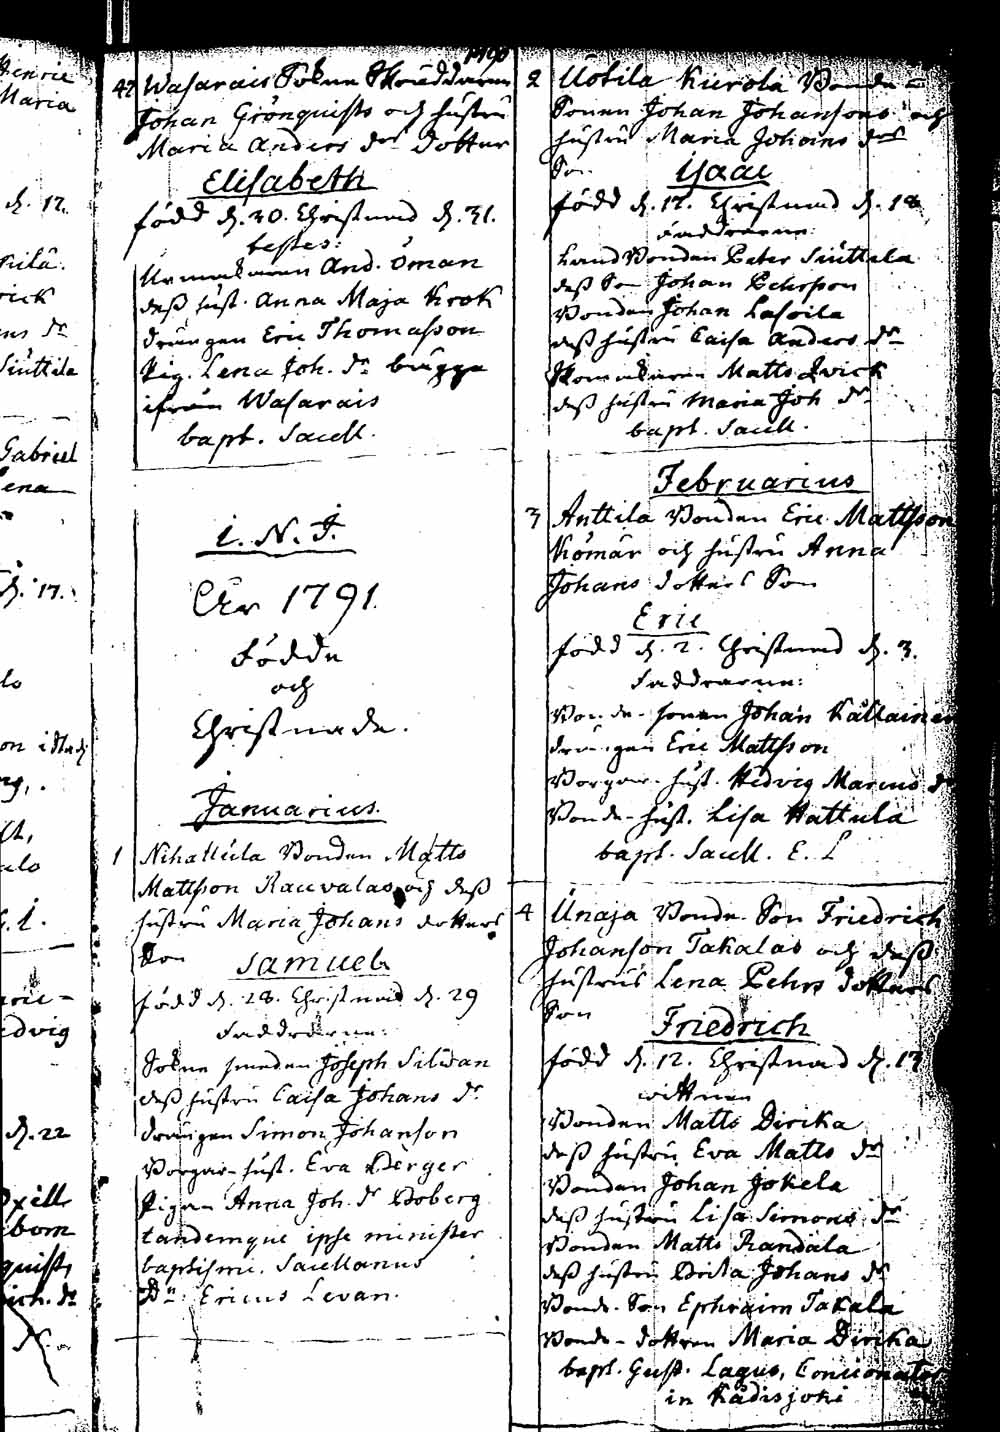 Henric
Maria
d. 17.
rick
Siuttila
Gabriel
Lena
d. 17.
lo
d. 22
1790
42 Wasarais Sokne Skräddaren
Johan Grönquists och hustru
Maria Anders dr dotter
Elisabeth
född d. 30. Christnad d. 31.
testes:
Urmakaren And. Öman
dess hust. Anna Maja Krok
drängen Eric Thomasson
Pig. Lena Joh. dr bägge
ifrån Wasarais
bapt. Sacell.
I. N. J.
År 1791.
Födde
och
Christnade.
Januarius.
1 Nihattula Bonden Matts
Mattsson Rauvalas och dess
hustru Maria Johans dotters
Son
Samuel
född d. 28. Christnad d. 29
Faddrarne:
Sokne smeden Joseph Silwan
dess hustru Caisa Johans dr
drängen Simon Johanson
Borgar-hust. Eva Berger
Pigan Anna Joh. dr Boberg
tandemque ipse minister
baptismi. Sacellanus
Dn. Ericus Levan.
2 Uotila Kierola Bonde-
Sonen Johan Johansons och
hustru Maria Johans drs
Son
Isaac
född d. 17. Christnad d. 18
Faddrarne:
Land Bonden Peter Siuttila
dess Son Johan Pehrsson
Bonden Johan Lasoila
dess hustru Caisa Anders dr
Skomakaren Matts Qvick
dess hustru Maria Joh dr
bapt. Sacell.
Februarius
3 Anttila Bonden Eric Mattsson
Komár och hustru Anna
Johans dotters Son
Eric
född d. 2. Christnad d. 3.
Faddrarne:
Bonde-sonen Johan Kallainen
drängen Eric Mattsson
Borgar-hust. Hedvig Marcus dr
Bonde-hust. Lisa Hattula
bapt. Sacell. E. L
4 Unaja Bonde-Son Friedrich
Johanson Takalas och dess
hustrus Lena Pehrs dotters
Son
Friedrich
född d. 12. Christnad d. 13
wittnen
Bonden Matts Dirika
dess hustru Eva Matts dr
Bonden Johan Jokela
dess hustru Lisa Simons dr
Bonden Matts Randala
dess hustru Brita Johans dr
Bonde-Son Ephraim Takala
Bonde-dottren Maria Dirika
bapt. Gust. Lagus, Concionator
in Kådisjoki